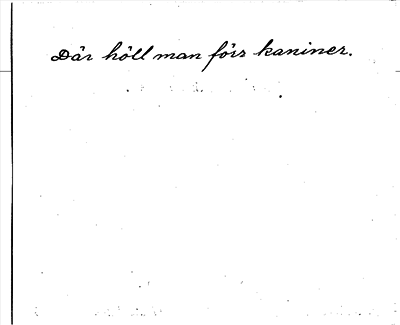 Där höll man förs kaniner.